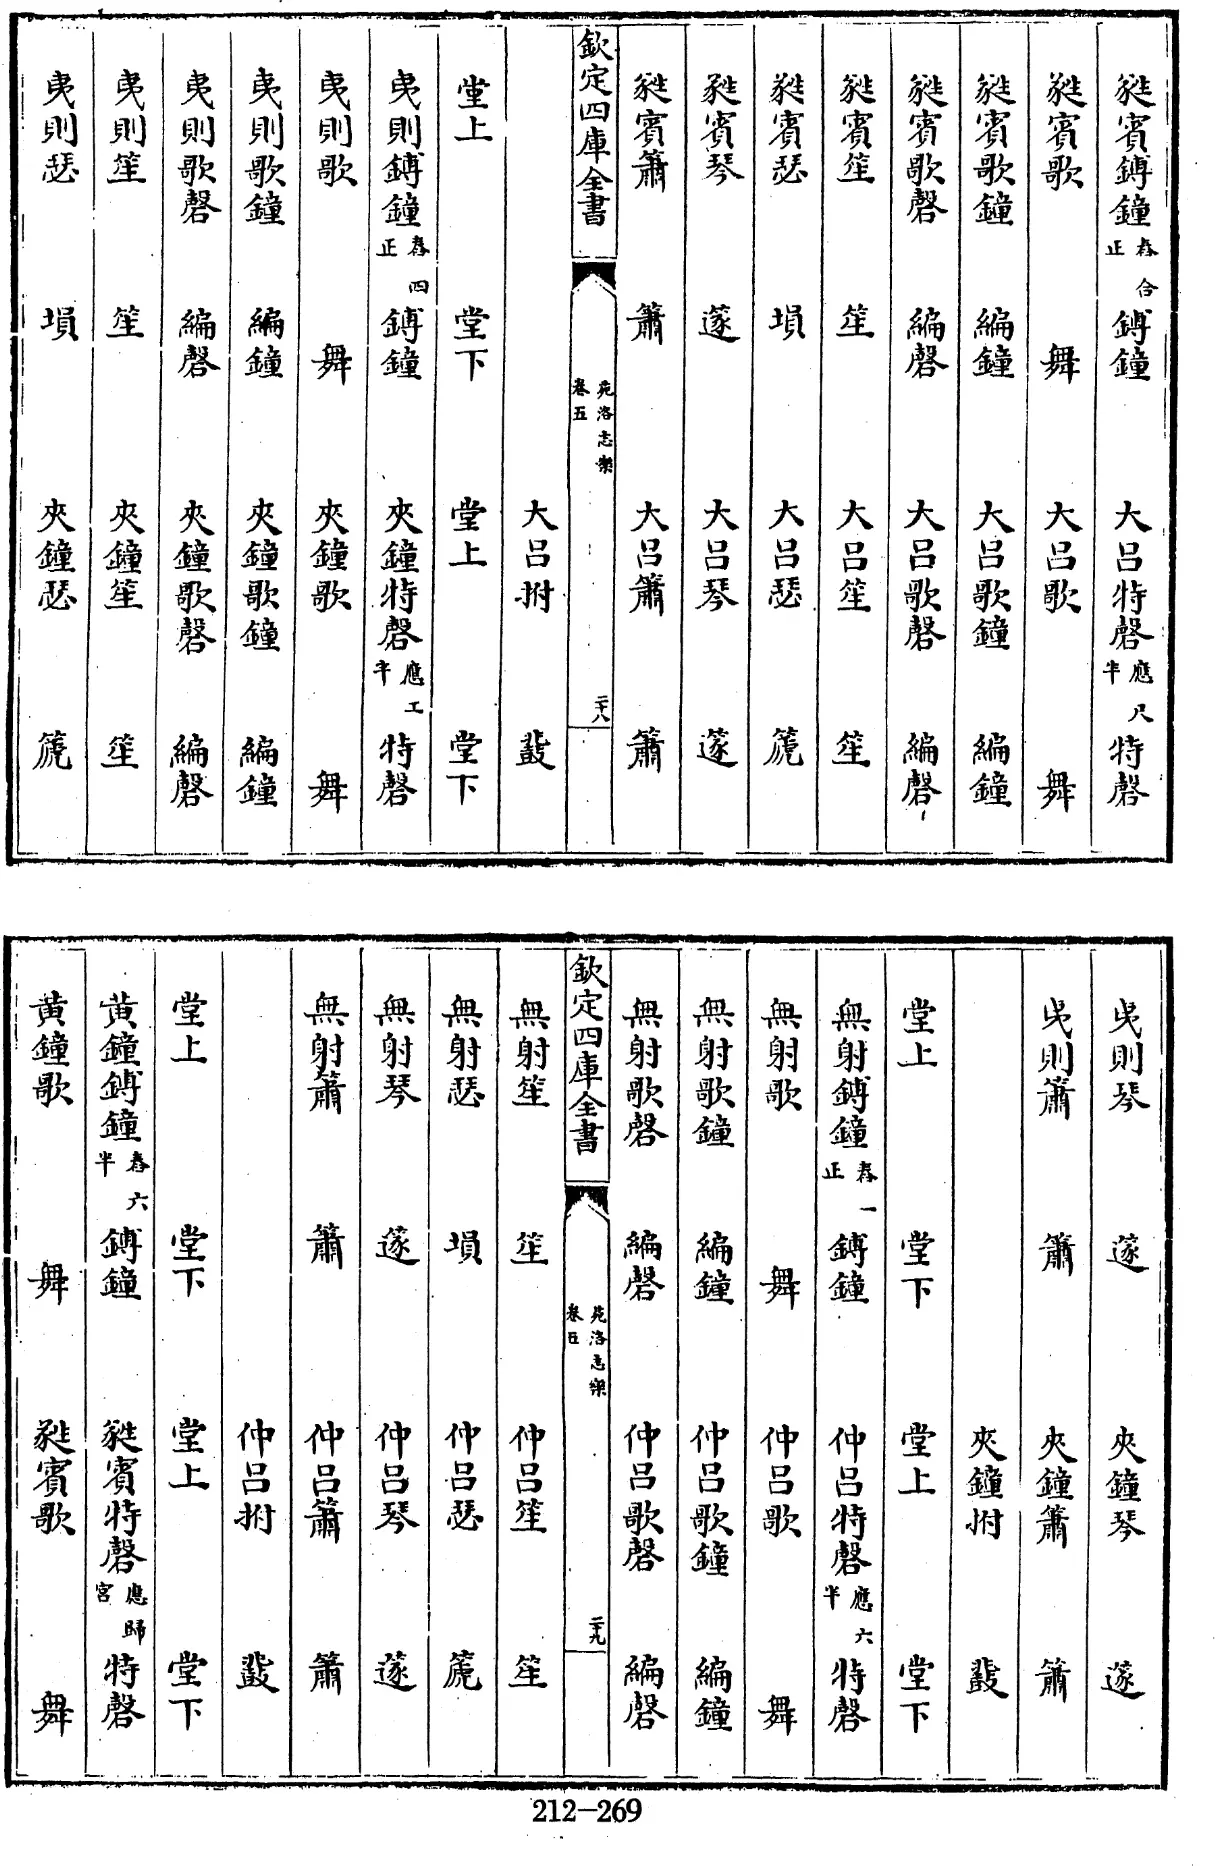 蕤賓鎛鐘 舂正合 鎛鐘 大呂特磬 應半尺 特磬
蕤賓歌 舞 大呂歌 舞
蕤賓歌鐘 編鐘 大呂歌鐘 編鐘
蕤賓歌磬 編磬 大呂歌磬 編磬
蕤賓笙 笙 大呂笙 笙
蕤賓瑟 塤 大呂瑟 篪
蕤賓琴 篴 大呂琴 篴
蕤賓簫 簫 大呂簫 簫
欽定四庫全書 苑洛志樂 卷五 二十八
大呂拊 鼗
堂上 堂下 堂上 堂下
夷則鎛鐘 舂正四 鎛鐘 夾鐘特磬 應半工 特磬
夷則歌 舞 夾鐘歌 舞
夷則歌鐘 編鐘 夾鐘歌鐘 編鐘
夷則歌磬 編磬 夾鐘歌磬 編磬
夷則笙 笙 夾鐘笙 笙
夷則瑟 塤 夾鐘瑟 篪
夷則琴 篴 夾鐘琴 篴
夷則簫 簫 夾鐘簫 簫
夾鐘拊 鼗
堂上 堂下 堂上 堂下
無射鎛鐘 舂正一 鎛鐘 仲呂特磬 應半六 特磬
無射歌 舞 仲呂歌 舞
無射歌鐘 編鐘 仲呂歌鐘 編鐘
無射歌磬 編磬 仲呂歌磬 編磬
欽定四庫全書 苑洛志樂 卷五 二十九
無射笙 笙 仲呂笙 笙
無射瑟 塤 仲呂瑟 篪
無射琴 篴 仲呂琴 篴
無射簫 簫 仲呂簫 簫
仲呂拊 鼗
堂上 堂下 堂上 堂下
黃鐘鎛鐘 舂半六 鎛鐘 蕤賓特磬 應宮歸 特磬
黃鐘歌 舞 蕤賓歌 舞
212-269